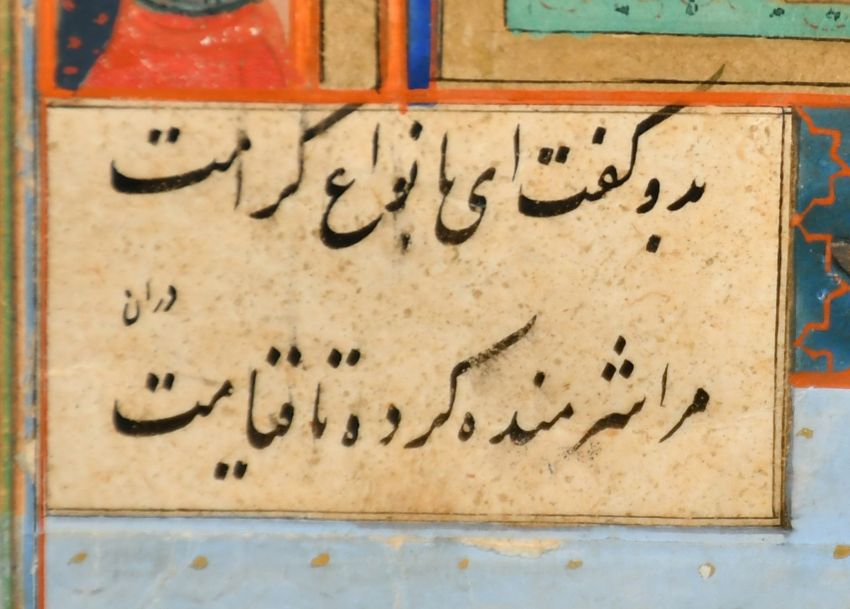 بدو گفت ای بانواع کرامت
دران
مرا شرمنده کرده تا قیامت